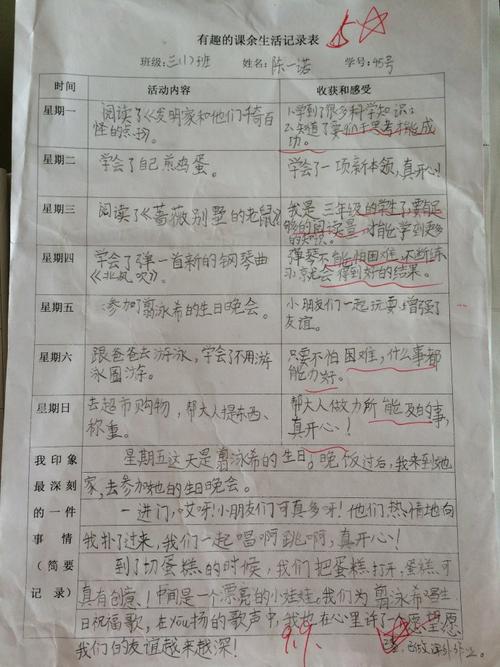 有趣的课余生活记录表
5☆
班级:三(1)班 姓名:陈一诺 学号:45号
时间 活动内容 收获和感受
星期一 阅读了《发明家和他们千奇百
怪的点物。
1.学到了很多科学知识;
2.知道了要勤于思考才能成
功。
星期二 学会了自己煎鸡蛋。 学会了一项新本领,真开心!
星期三 阅读了《蔷薇别墅的老鼠》
我是三年级的学生了,要有足
够的阅读量,才能学到更多
的知识。
星期四 学会了弹一首新的钢琴曲
《北风吹》。
弹琴不能怕困难,不断练
习,就会得到好的结果。
星期五 参加了翦泳希的生日晚会。 小朋友们一起玩耍,增强了
友谊。
星期六 跟爸爸去游泳,学会了不用游
泳圈游。
只要不怕困难,什么事都
能办好。
星期日 去超市购物,帮大人提东西、
称重。
帮大人做力所能及的事,
真开心!
我印象最深刻的一件事情(简要记录)
星期五这天是翦泳希的生日,晚饭过后,我来到她
家,去参加她的生日晚会。
一进门,哎呀!小朋友们可真多呀!他们热情地向
我扑了过来,我们一起唱啊跳啊,真开心!
到了切蛋糕的时候,我们把蛋糕打开,蛋糕可
真有创意!中间是一个漂亮的小娃娃,我们为翦泳希唱生
日祝福歌,在心里许了一愿望愿
我们的友谊越来越深!
9.9.